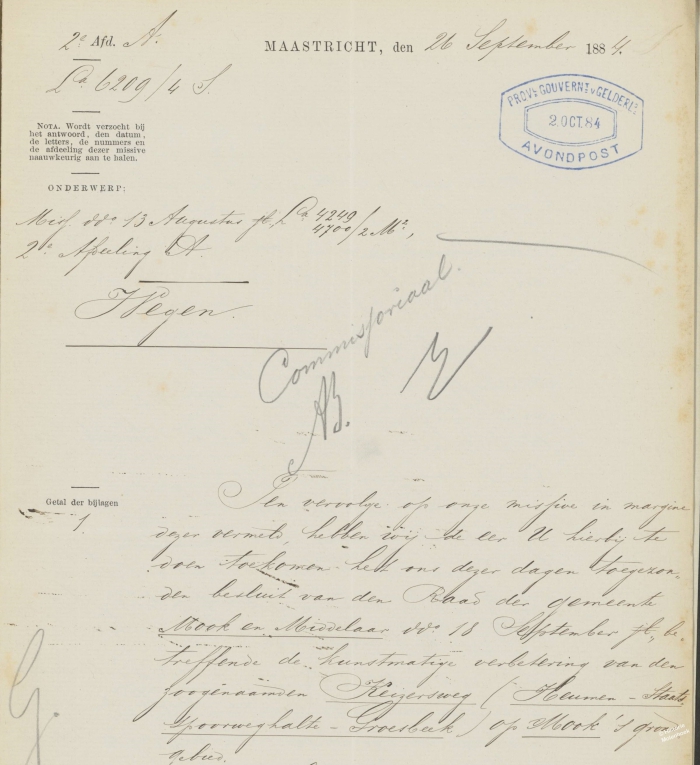 2e Afd. A.
MAASTRICHT, den 26 September 1884.
La 6209/4 S.
PROVL GOUVERNT v GELDERLD
2.OCT.84
AVONDPOST
NOTA. Wordt verzocht bij
het antwoord, den datum,
de letters, de nummers en
de afdeeling dezer missive
naauwkeurig aan te halen.
ONDERWERP:
Miss. ddo 13 Augustus jl. La 4249
4700/2 M2,
2e Afdeeling A.
Wegen.
Commissoriaal.
AB.
Getal der bijlagen
1
Ten vervolge op onze missive in margine
dezer vermeld, hebben wij de eer U hierbij te
doen toekomen het ons dezer dagen toegezon-
den besluit van den Raad der gemeente
Mook en Middelaar ddo 18 September jl., be-
treffende de kunstmatige verbetering van den
zoogenaamden Keizersweg (Heumen - Staats
spoorweghalte - Groesbeek) op Mook's grond
gebied.